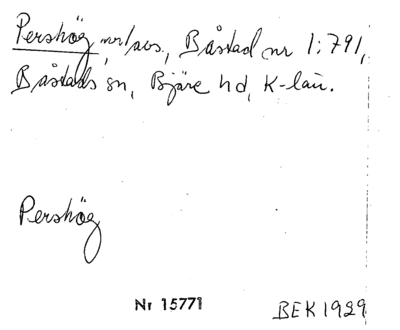 Pershög nr/avs., Båstad nr 1:791,
Båstads sn, Bjäre hd, K-län.
Pershög
Nr 15771
BEK 1929